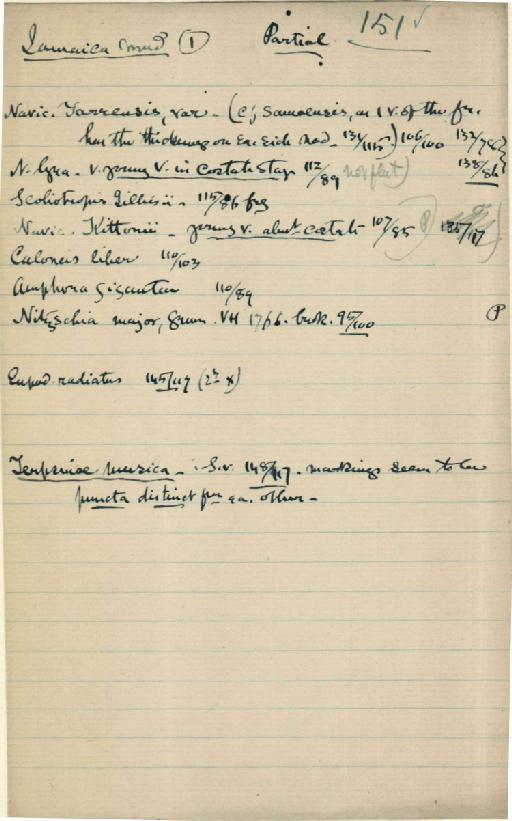 Jamaica mud (1) Partial 151 ✓
Navic. Yarrensis, var - (cf Samoensis, as 1 v. of the fr.
has the thickening on ea. side nod - 131/115) 106/100 132/79
N. lyra - v. young v. in costate stage 112/89 not flat) 138/86
Scoliotropis Gilliesii - 115/86 frg
Navic. Kittonii - young v. almost costate 107/85 (P) 135/117
Caloneis liber 110/103
Amphora gigantea 110/89
Nitzschia major, Grun. VH 17/66. brok. 95/100 (P)
Eupod radiatus 145/117 (2nd x)
Terpsinoe musica - S.v. 148/117. markings seem to be
puncta distinct fm ea. other -